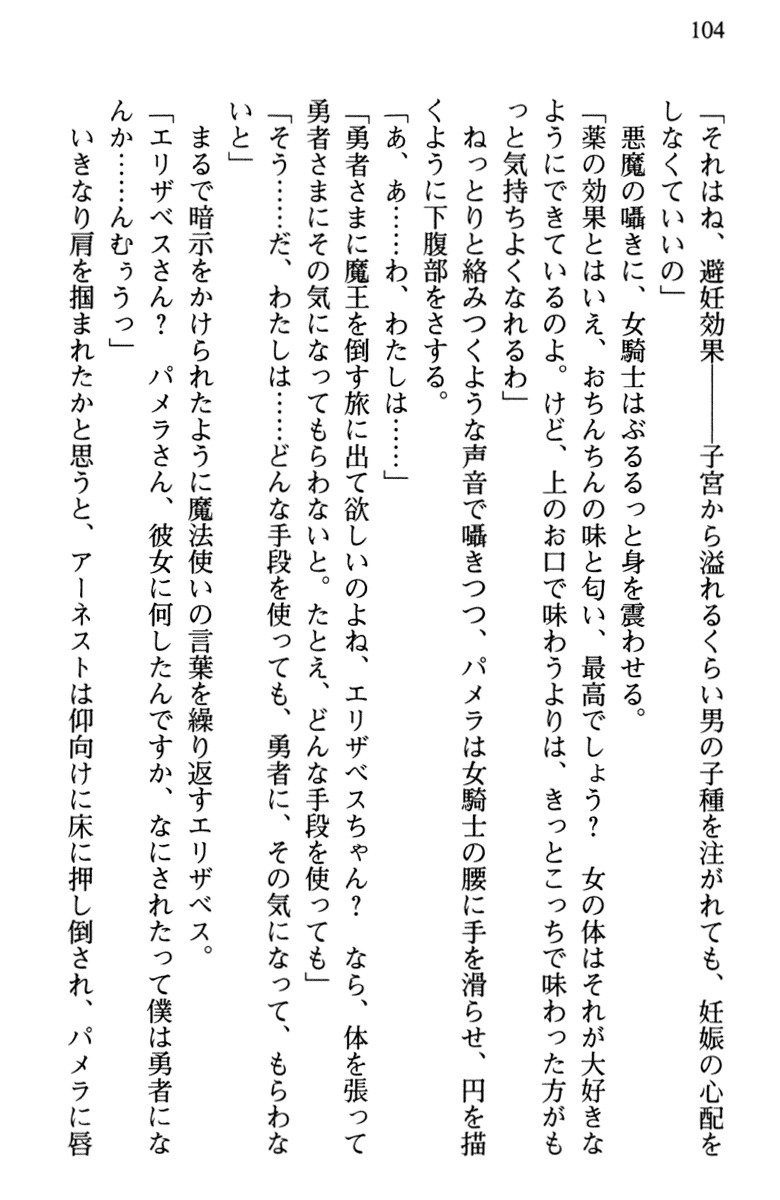 104
「それはね、避妊効果――子宮から溢れるくらい男の子種を注がれても、妊娠の心配を
しなくていいの」
悪魔の囁きに、女騎士はぶるるっと身を震わせる。
「薬の効果とはいえ、おちんちんの味と匂い、最高でしょう？　女の体はそれが大好きな
ようにできているのよ。けど、上のお口で味わうよりは、きっとこっちで味わった方がも
っと気持ちよくなれるわ」
ねっとりと絡みつくような声音で囁きつつ、パメラは女騎士の腰に手を滑らせ、円を描
くように下腹部をさする。
「あ、あ……わ、わたしは……」
「勇者さまに魔王を倒す旅に出て欲しいのよね、エリザベスちゃん？　なら、体を張って
勇者さまにその気になってもらわないと。たとえ、どんな手段を使っても」
「そう……だ、わたしは……どんな手段を使っても、勇者に、その気になって、もらわな
いと」
まるで暗示をかけられたように魔法使いの言葉を繰り返すエリザベス。
「エリザベスさん？　パメラさん、彼女に何したんですか、なにされたって僕は勇者にな
んか……んむぅうっ」
いきなり肩を掴まれたかと思うと、アーネストは仰向けに床に押し倒され、パメラに唇